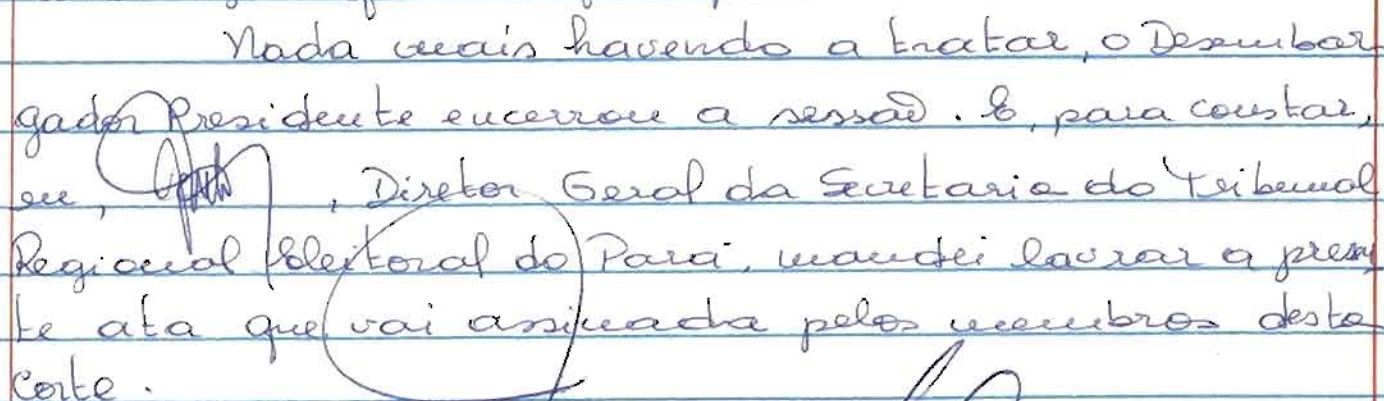 Nada mais havendo a tratar, o Desembar
gador Presidente encerrou a sessão. E, para constar,
eu, , Diretor Geral da Secretaria do Tribunal
Regional Eleitoral do Pará, mandei lavrar a presen
te ata que vai assinada pelos membros desta
Corte.